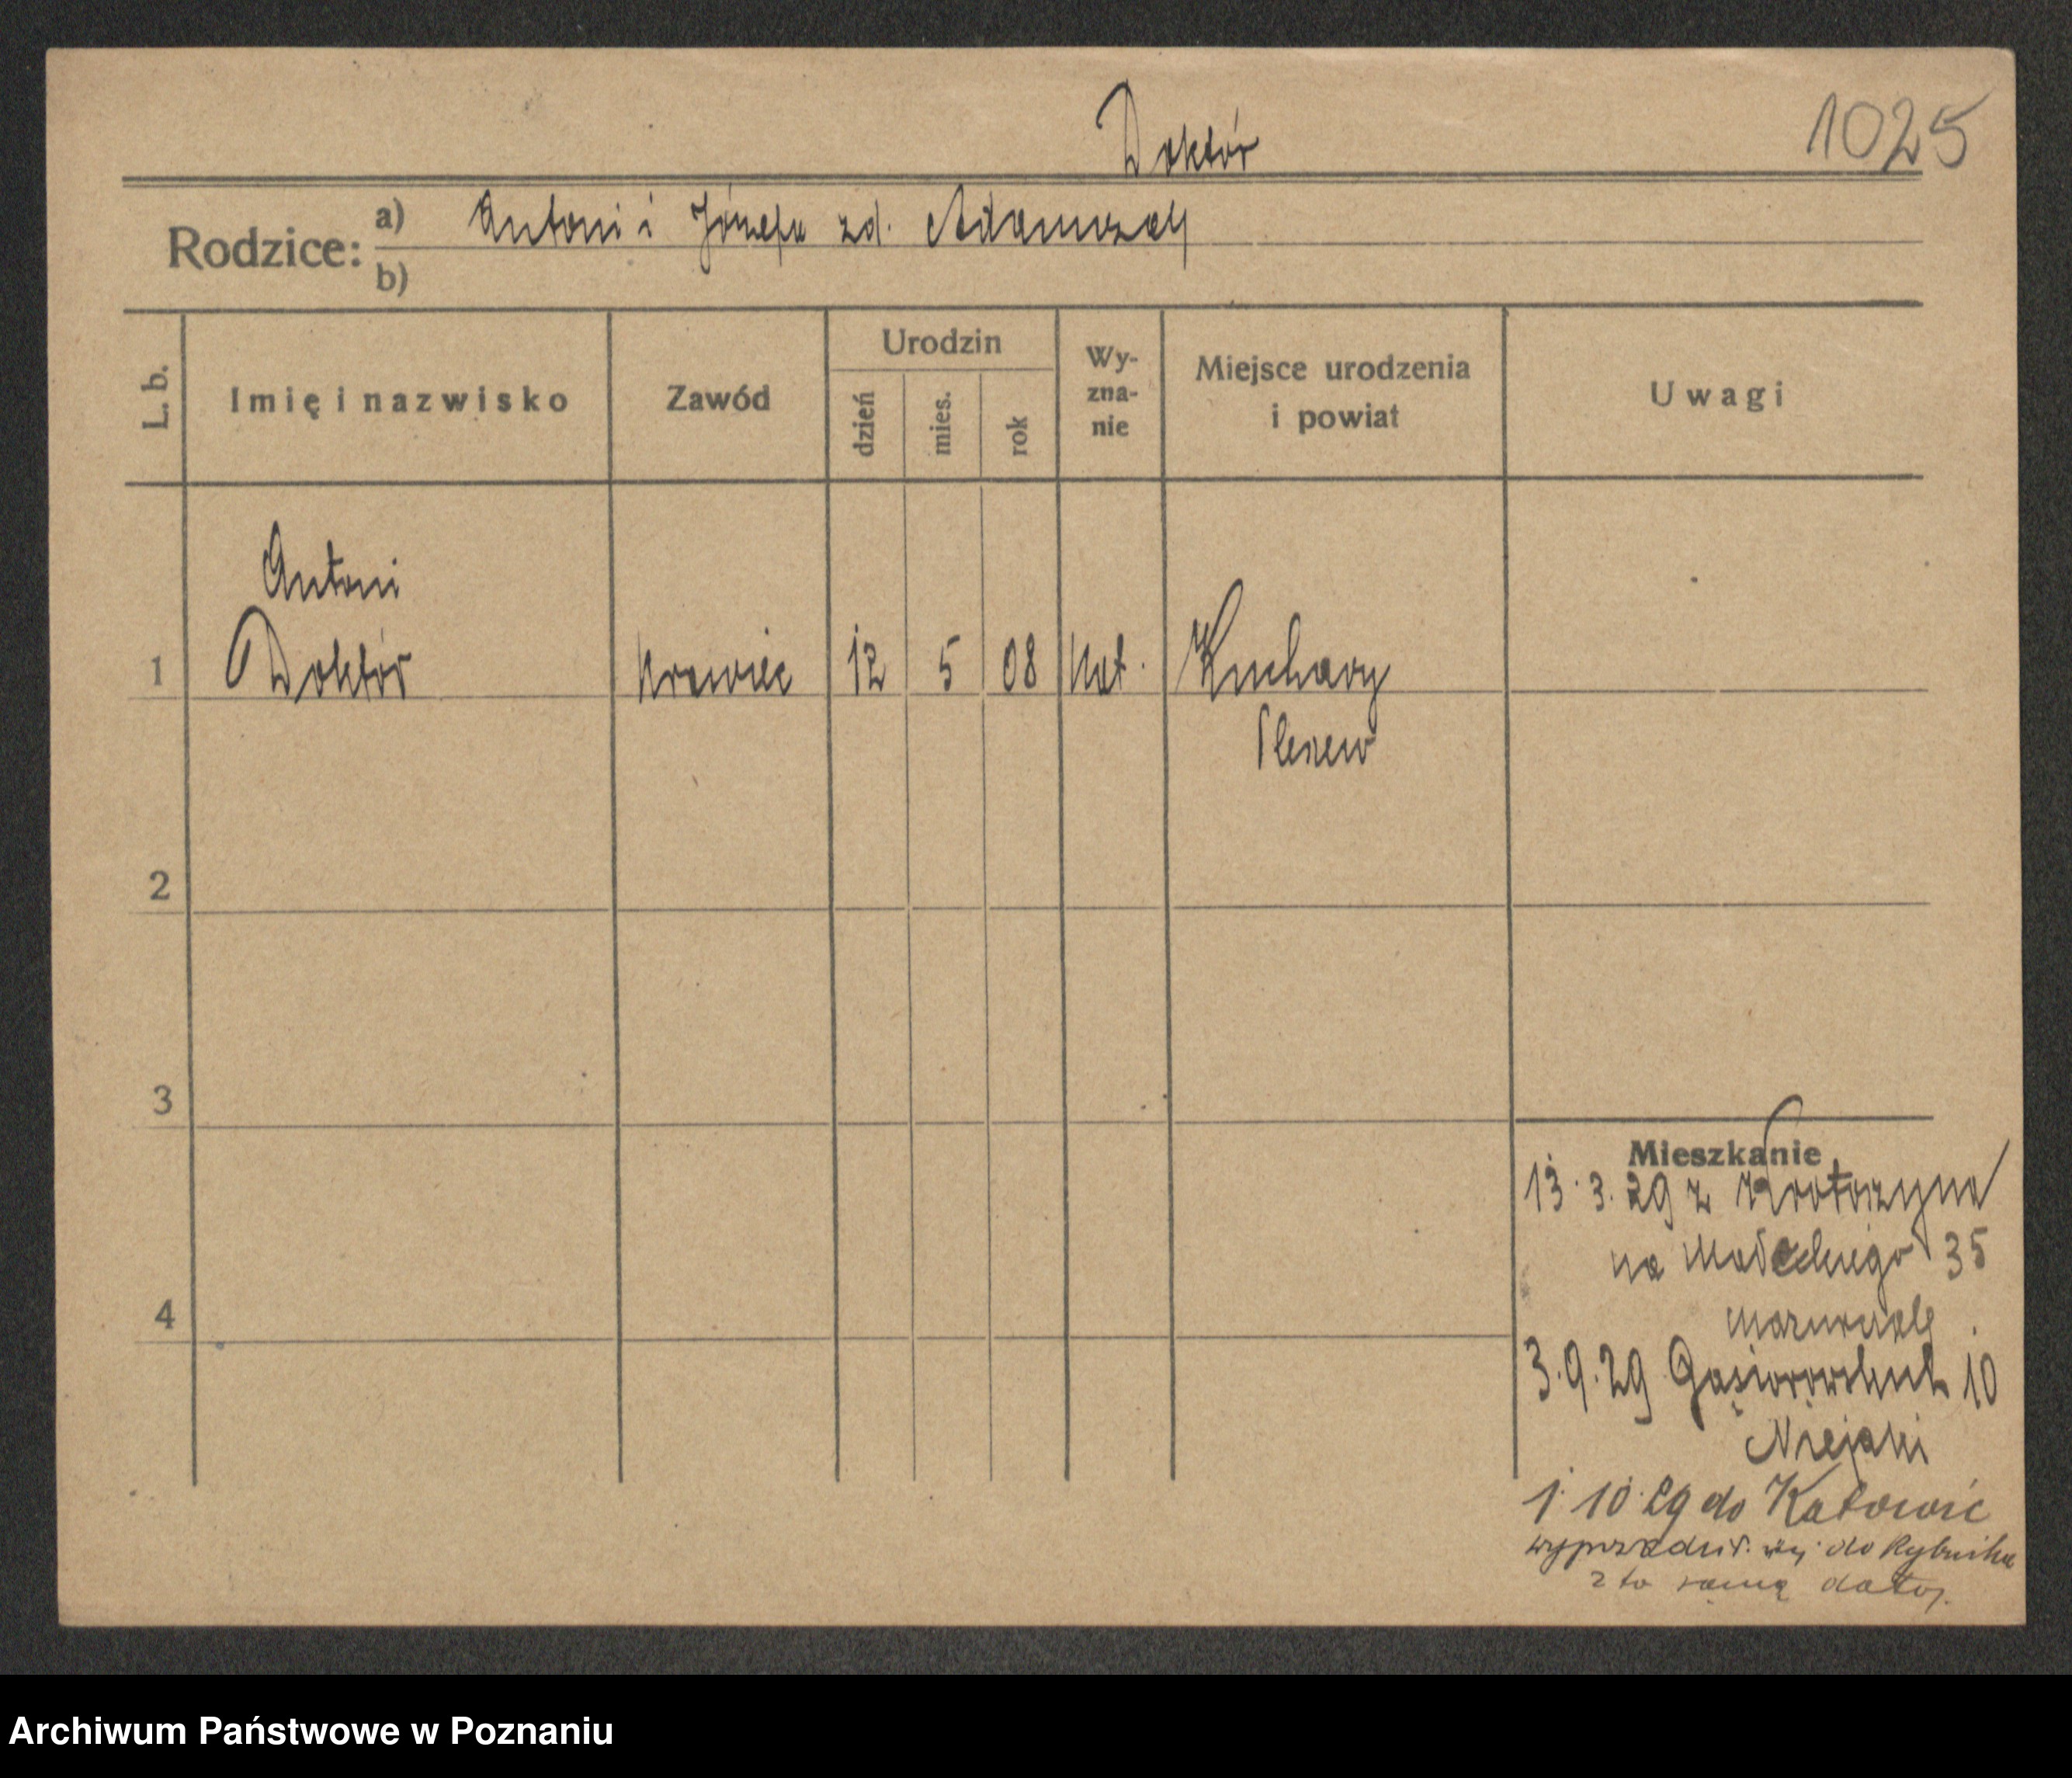 Doktór
1025
Rodzice: a) Antoni i Józefa zd. Adamczak
b)
L. b.
Imię i nazwisko
Zawód
Urodzin
dzień
mies.
rok
Wy-
zna-
nie
Miejsce urodzenia
i powiat
Uwagi
Antoni
1 Doktór krawiec 12 5 08 kat. Kuchary
Pleszew
2
3
4
Mieszkanie
13.3.29 z Krotoszyna
na 35
3.9.29 Gąsiorowskich 10
1.10.29 do Katowic
do Rybnika
z tą samą datą.
Archiwum Państwowe w Poznaniu